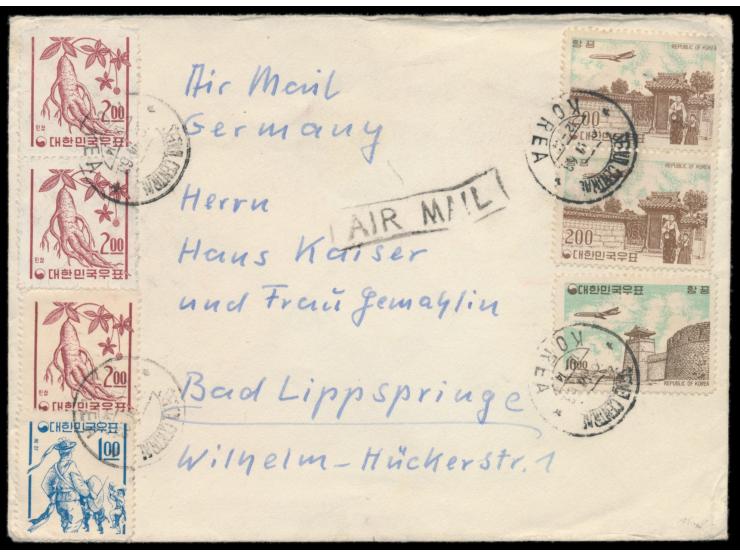 Air Mail
Germany
Herrn
Hans Kaiser
und Frau Gemahlin
Bad Lippspringe
Wilhelm-Hückerstr. 1
AIR MAIL
2.00
인삼
대한민국우표
2.00
인삼
대한민국우표
2.00
인삼
대한민국우표
대한민국우표
1.00
항공
REPUBLIC OF KOREA
대한민국우표
200
대한민국우표
대한민국우표
항공
10.00
REPUBLIC OF KOREA
SEOUL CENTRAL
KOREA
SEOUL CENTRAL
KOREA